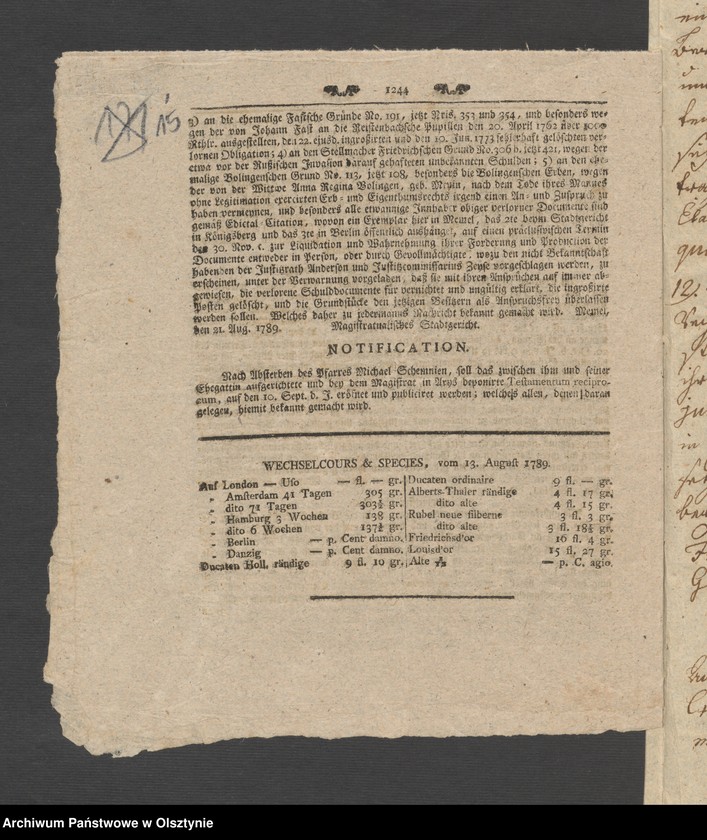 1244
15
3) an die ehemalige Fastsche Gründe No. 191, jetzt Nris. 353 und 354, und besonders we-
gen der von Johann Fast an die Meistenbachsche Pupillen den 20. April 1762 über 1000
Rthlr. ausgestellten, den 22. ejusd. ingroßirten und den 19. Jun. 1773 fehlerhaft gelöschten ver-
lornen Obligation; 4) an den Stellmacher Friedrichschen Grund No. 306 b. jetzt 421, wegen der
etwa vor der Rußischen Invasion darauf gehafteten unbekannten Schulden; 5) an den ehe-
malige Bolingenschen Grund No. 113, jetzt 108, besonders die Bolingenschen Erben, wegen
der von der Wittwe Anna Regina Bolingen, geb. Meyin, nach dem Tode ihres Mannes
ohne Legitimation exercirten Erb- und Eigenthumsrechts irgend einen An- und Zuspruch zu
haben vermeynen, und besonders alle etwannige Innhaber obiger verlorner Documente sind
gemäß Edictal-Citation, wovon ein Exemplar hier in Memel, das 2te beym Stadtgericht
in Königsberg und das 3te in Berlin öffentlich aushängt, auf einen präclusivischen Termin
den 30. Nov. c. zur Liquidation und Wahrnehmung ihrer Forderung und Production der
Documente entweder in Person, oder durch Gevollmächtigte, wozu den nicht Bekanntschaft
habenden der Justizrath Anderson und Justizcommissarius Zeyse vorgeschlagen werden, zu
erscheinen, unter der Verwarnung vorgeladen, daß sie mit ihren Ansprüchen auf immer ab-
gewiesen, die verlorene Schulddocumente für vernichtet und ungültig erklärt, die ingroßirte
Posten gelöscht, und die Grundstücke den jetzigen Besitzern als Anspruchsfrey überlassen
werden sollen. Welches daher zu jedermanns Nachricht bekannt gemacht wird. Memel,
den 21. Aug. 1789. Magistratualisches Stadtgericht.
NOTIFICATION.
Nach Absterben des Pfarres Michael Schemnien, soll das zwischen ihm und seiner
Ehegattin aufgerichtete und bey dem Magistrat in Arys deponirte Testamentum recipro-
cum, auf den 10. Sept. d. J. eröfnet und publiciret werden; welches allen, denen daran
gelegen, hiemit bekannt gemacht wird.
WECHSELCOURS & SPECIES, vom 13. August 1789.
Auf London — Uso — fl. — gr.
„ Amsterdam 41 Tagen 305 gr.
„ dito 71 Tagen 303½ gr.
„ Hamburg 3 Wochen 138 gr.
„ dito 6 Wochen 137½ gr.
„ Berlin — p. Cent damno.
„ Danzig — p. Cent damno.
Ducaten Holl. rändige 9 fl. 10 gr.
Ducaten ordinaire 9 fl. — gr.
Alberts-Thaler rändige 4 fl. 17 gr.
dito alte 4 fl. 15 gr.
Rubel neue silberne 3 fl. 3 gr.
dito alte 3 fl. 18½ gr.
Friedrichsd'or 16 fl. 4 gr.
Louisd'or 15 fl. 27 gr.
Alte — p. C. agio.
Archiwum Państwowe w Olsztynie